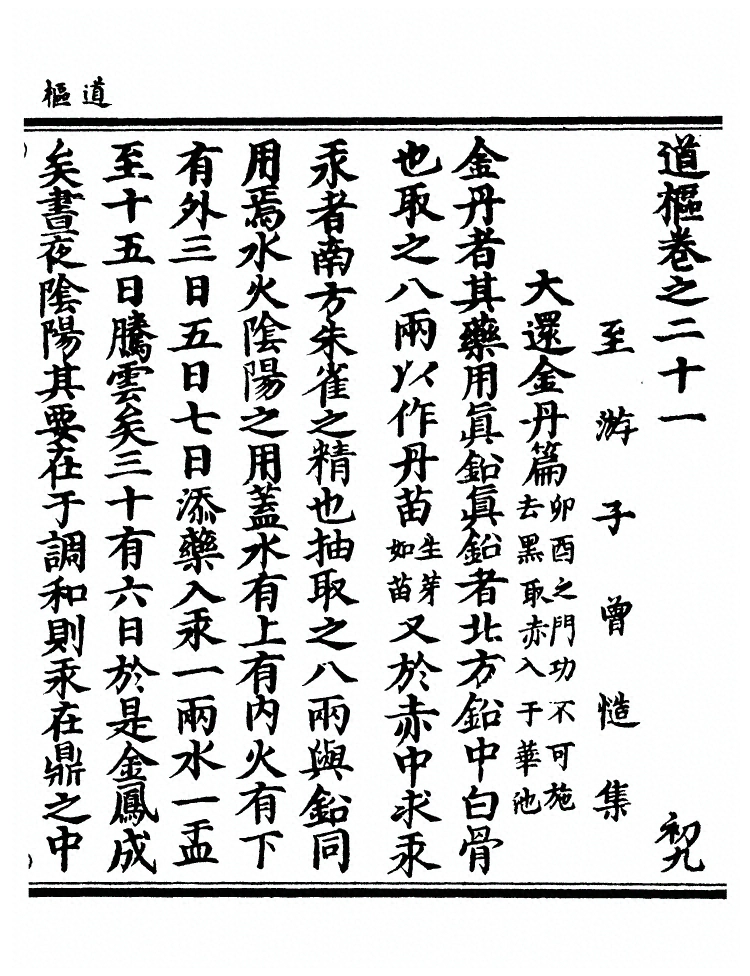 道樞
道樞卷之二十一 初九
至游子曾慥集
大還金丹篇 卯酉之門功不可施 去黑取赤入于華池
金丹者其藥用眞鉛眞鉛者北方鉛中白骨
也取之八兩以作丹苗 生芽 如苗 又於赤中求汞
汞者南方朱雀之精也抽取之八兩與鉛同
用焉水火陰陽之用蓋水有上有内火有下
有外三日五日七日添藥入汞一兩水一盂
至十五日騰雲矣三十有六日於是金鳳成
矣晝夜陰陽其要在于調和則汞在鼎之中